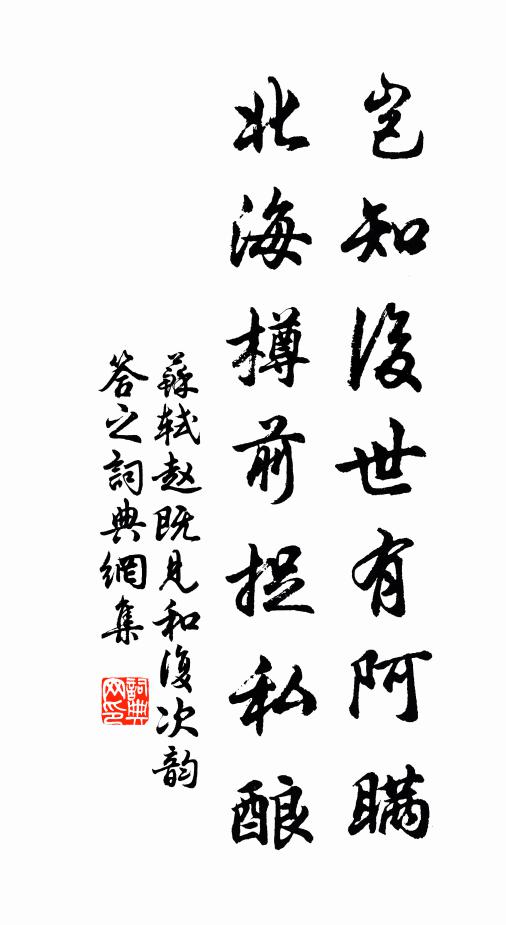 豈知後世有阿瞞
北海樽前捉私酿
蘇轼赵既見和復次韵
答之詞典網集
詞典网印